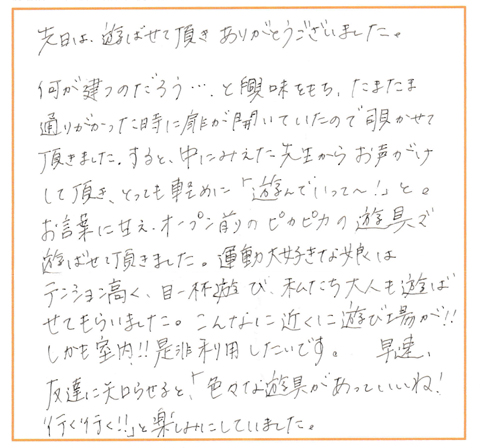 先日は、遊ばせて頂き ありがとうございました。
何が建つのだろう…、と興味をもち、たまたま
通りがかった時に扉が開いていたので覗かせて
頂きました。すると、中にみえた先生からお声がけ
して頂き、とっても軽めに「遊んでいって〜!」と。
お言葉に甘え、オープン前のピカピカの遊具で
遊ばせて頂きました。運動大好きな娘は
テンション高く、目一杯遊び、私たち大人も遊ば
せてもらいました。こんなに近くに遊び場が!!
しかも室内!!是非利用したいです。 早速、
友達に知らせると、「色々な遊具があっていいね!
行く行く!!」と楽しみにしていました。